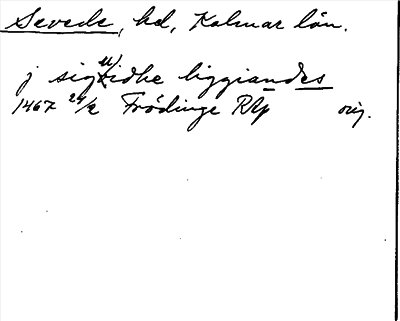 Sevede, hd, Kalmar län.
j sigwidhe liggiandes
1467 24/2 Frödinge RAp orig.